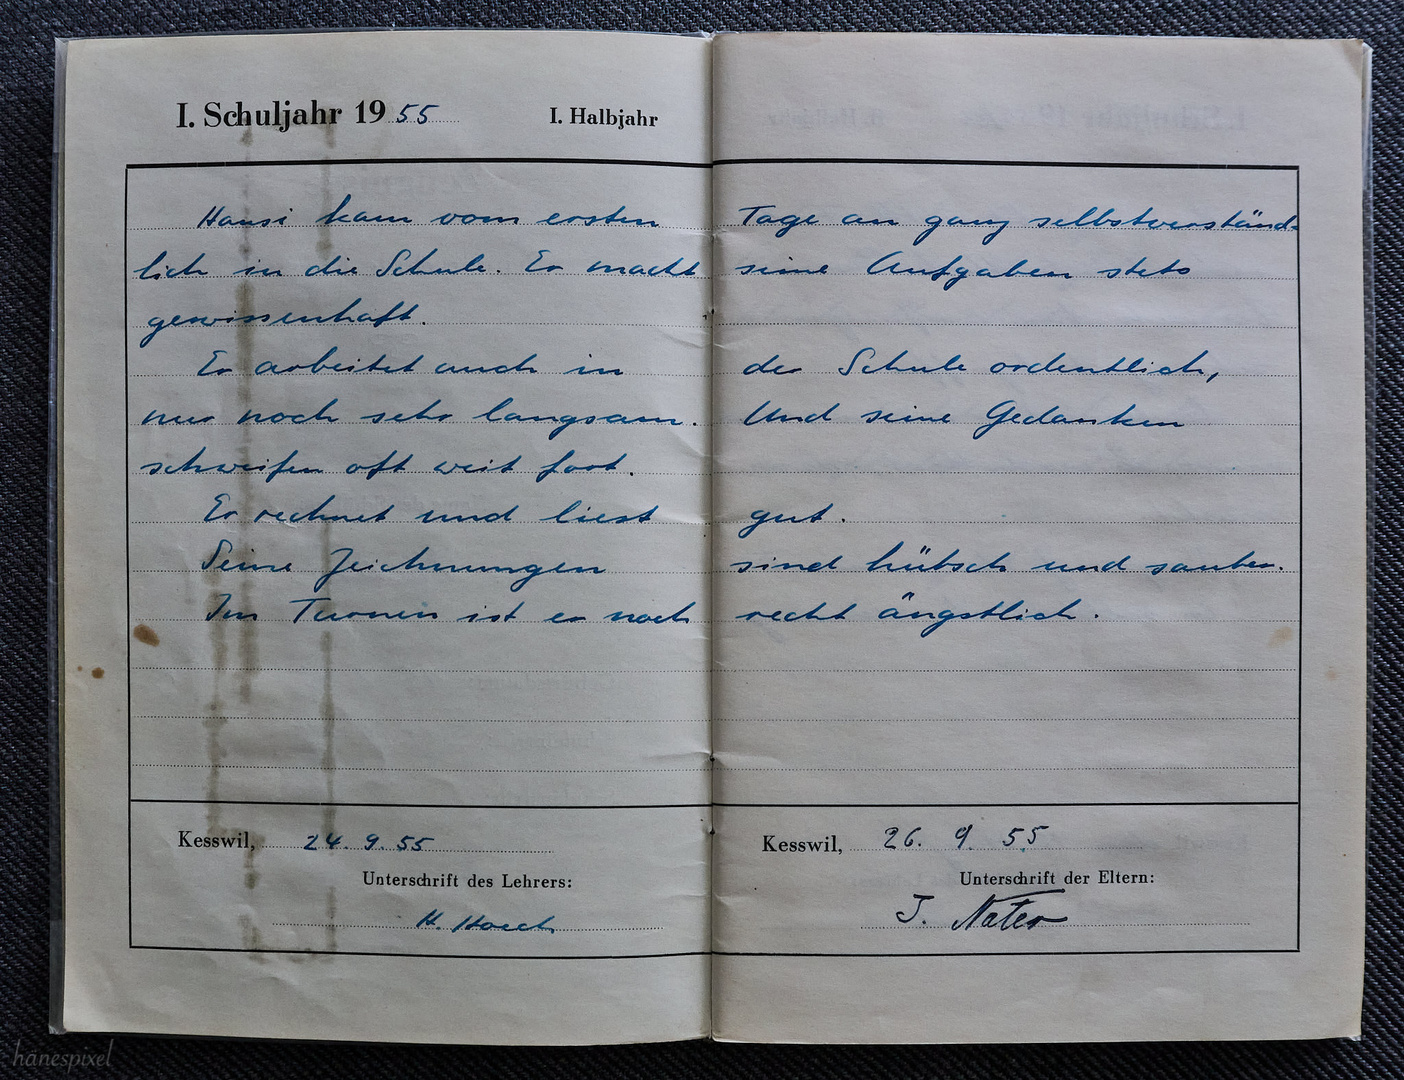 I. Schuljahr 1955 I. Halbjahr
Hansi kam vom ersten Tage an ganz selbstverständ-
lich in die Schule. Er macht seine Aufgaben stets
gewissenhaft.
Er arbeitet auch in der Schule ordentlich,
nur noch sehr langsam. Und seine Gedanken
schweifen oft weit fort.
Er rechnet und liest gut.
Seine Zeichnungen sind hübsch und sauber.
Im Turnen ist er noch recht ängstlich.
Kesswil, 24. 9. 55 Kesswil, 26. 9. 55
Unterschrift des Lehrers: Unterschrift der Eltern:
H. J. Nater
hänespixel